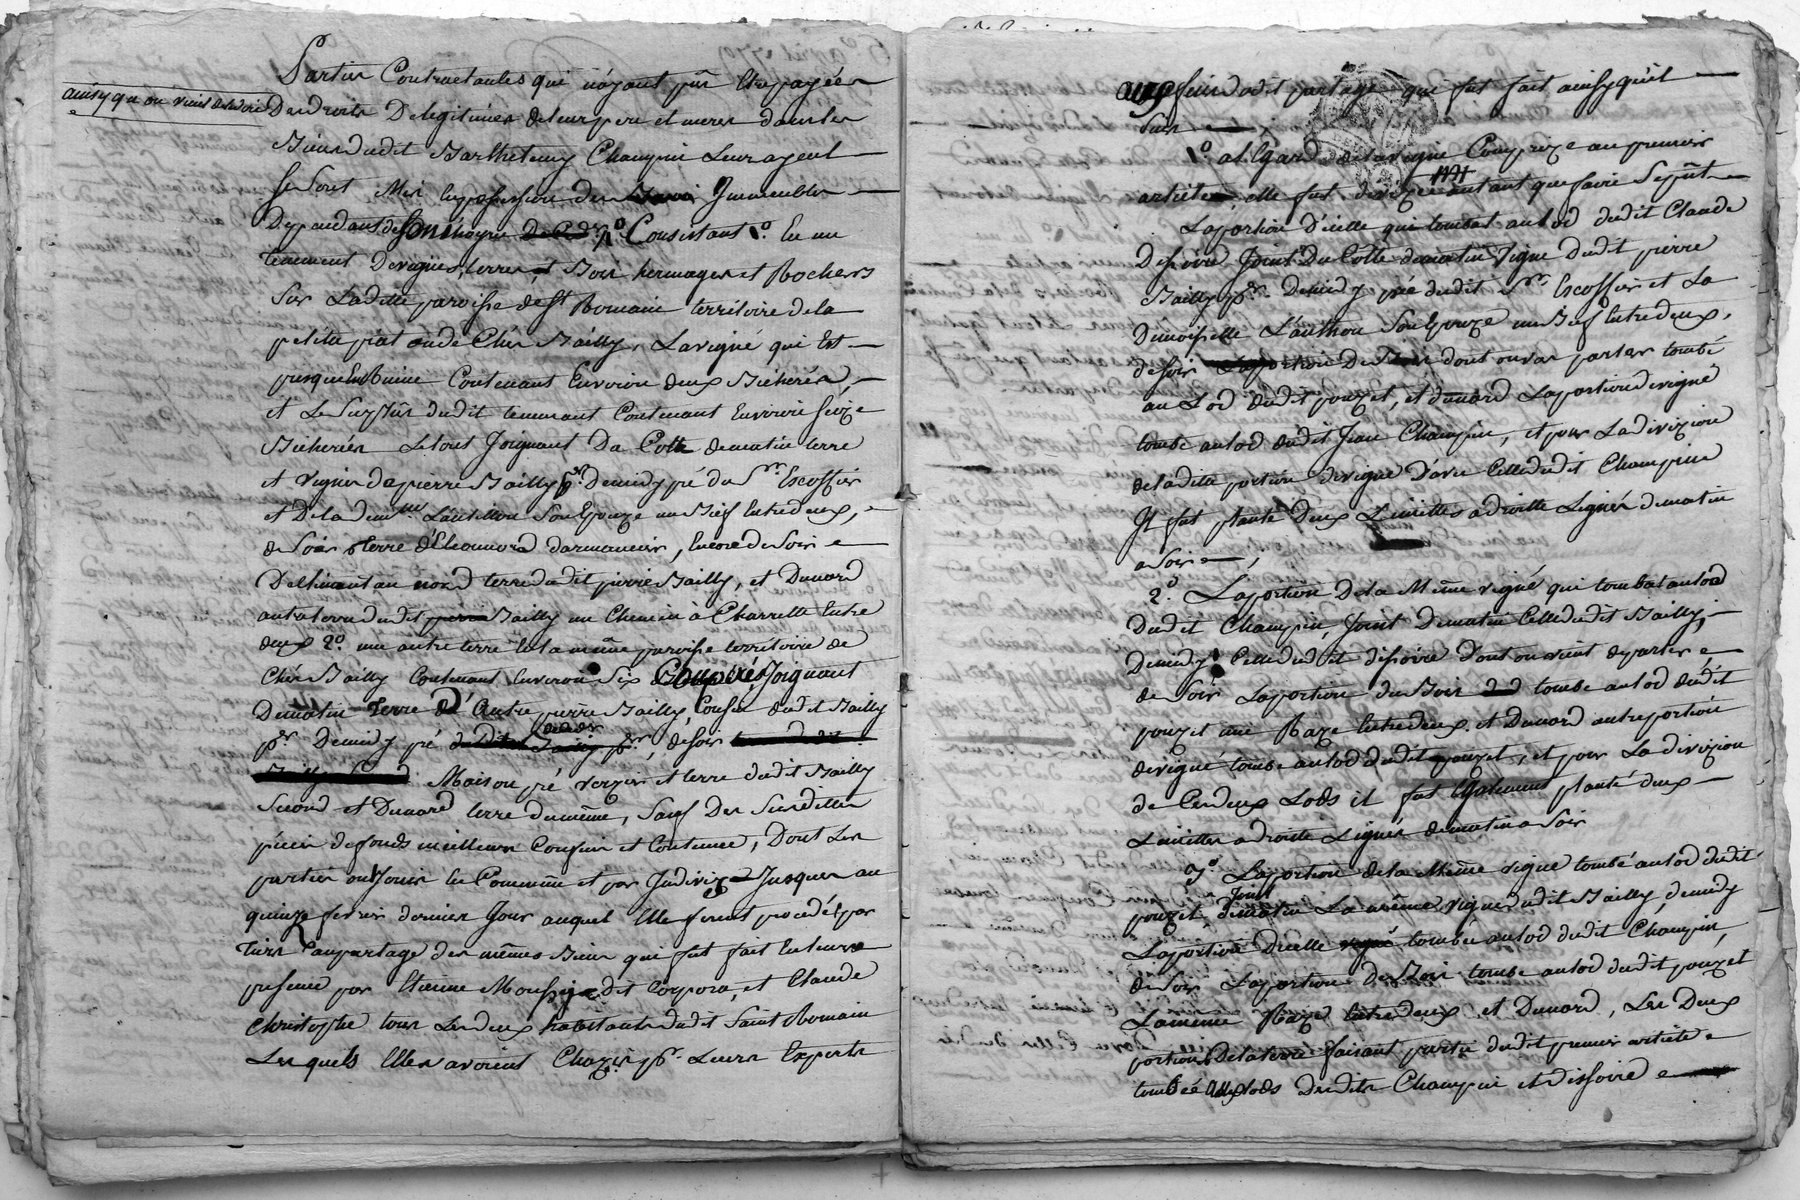 Parties Contractantes qui n'ayant pas Etepayées
ainsy qu'on vient dele dire
Des droits De legitimes de leur pere et meres dans les
Biens dudit Barthelemy Champin Leur ayeul
se sont Mis en possession des Immeubles
Dependants de son hoyrie Consistant 1.o En un
tenement De vignes, terres, et Bois hermages et Rochers
Sur Ladite paroisse de St Romain territoire de la
petite piat ou de Chés Bailly, La vigne qui Est
presque En Ruine Contenant Environ deux Bicherées,
et Le Surplus dudit tenement Contenant Environ seize
Bicherées Letout Joignant Du Cotté de matin terre
et vignes de pierre Bailly pr. De midy pré du Sr. Escoffier
et De la demlle. Lauthon Son Epouze un Bief Entredeux,
de Soir terre d'Eleonnord darmancier, Encore de Soir
Declinant au nord terre dudit pierre Bailly, et Dunord
autre terre dudit Bailly un Chemin à Charrette Entre
deux 2.o une autre terre En la même paroisse territoire de
Chés Bailly Contenant Environ Six Coupées Joignant
De matin Terre D'Autre pierre Bailly, Cousin dudit Bailly
pr. De midy pré dudit pr., de soir
Maison pré verger et terre dudit Bailly
Second et Dunord terre du même, Sauf Des Susdittes
pièces de fonds meilleurs Confins et Contenue, Dont Les
parties ont Joui En Commun et par Indivis Jusques au
quinze fevrier dernier Jour auquel Elle firent procedér par
Tiers au partage des mêmes Biens qui fut fait En leur
presence par Etienne dit Corpora, et Claude
Christophe tous Les deux habitants dudit Saint Romain
Les quels Elles avoient Choizis pr. Leurs Experts
aux fins dudit partage qui fut fait ainsy qu'il
Suit
1.o a l'Egard de la vigne Comprize au premier
article elle fut autant que faire Se put
La portion d'icelle qui tombat au lod dudit Claude
Dissoire Joint Du Cotté de matin Vigne dudit pierre
Bailly pr. De midy pré dudit Sr. Escoffier et La
Demoiselle Lauthon Son Epouze un Bief Entredeux,
de soir dont on vas parler tombé
au Lod dudit pouzet, et dunord La portion de vigne
tombé au lod dudit Jean Champin, et pour La division
de la dite portion de vigne D'avec Celle dudit Champin
Il fut planté Deux Limittes a droitte Lignes de matin
a Soir
2.o La portion De la Même vigne qui tombat au lod
Dudit Champin, Joint De matin Celle dudit Bailly,
De midy Celle dudit dissoire Dont on vient de parler
de Soir La portion du Bois tombé au lod dudit
pouzet une Raze Entredeux et Dunord autre portion
de vigne tombé au lod dudit pouzet, et pour La division
de Ces deux Lods il fut Egalement planté deux
Limittes a droitte Lignes de matin a Soir
3.o La portion de la Même vigne tombé au lod dudit
Joint
pouzet, de matin La même vigne dudit Bailly, de midy
La portion d'icelle tombée au lod dudit Champin,
de Soir La portion De Bois tombé au lod dudit pouzet
La même Raze Entredeux et Dunord, Les Deux
portions De la terre faisant partie dudit premier article
tombée aux lods Desdits Champin et dissoire